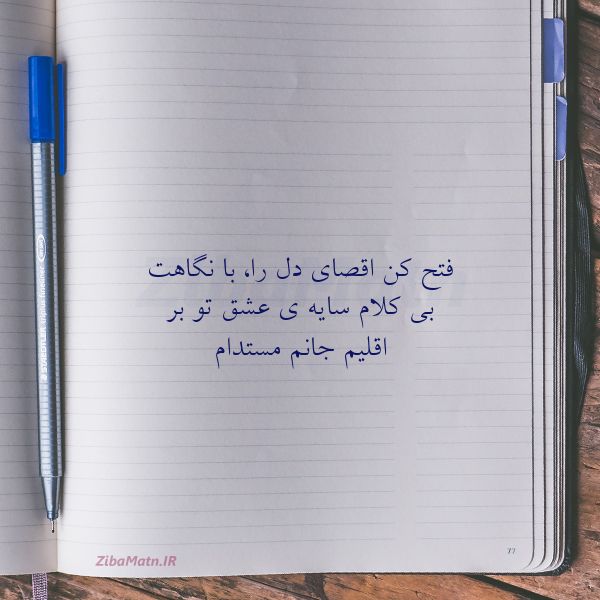 فتح کن اقصای دل را، با نگاهت
بی کلام سایه ی عشق تو بر
اقلیم جانم مستدام
ZibaMatn.IR
77